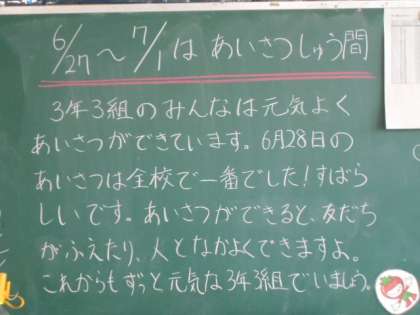 6/27〜7/1はあいさつしゅう間
3年3組のみんなは元気よく
あいさつができています。6月28日の
あいさつは全校で一番でした!すばら
しいです。あいさつができると、友だち
がふえたり、人となかよくできますよ。
これからもずっと元気な3年3組でいましょう。